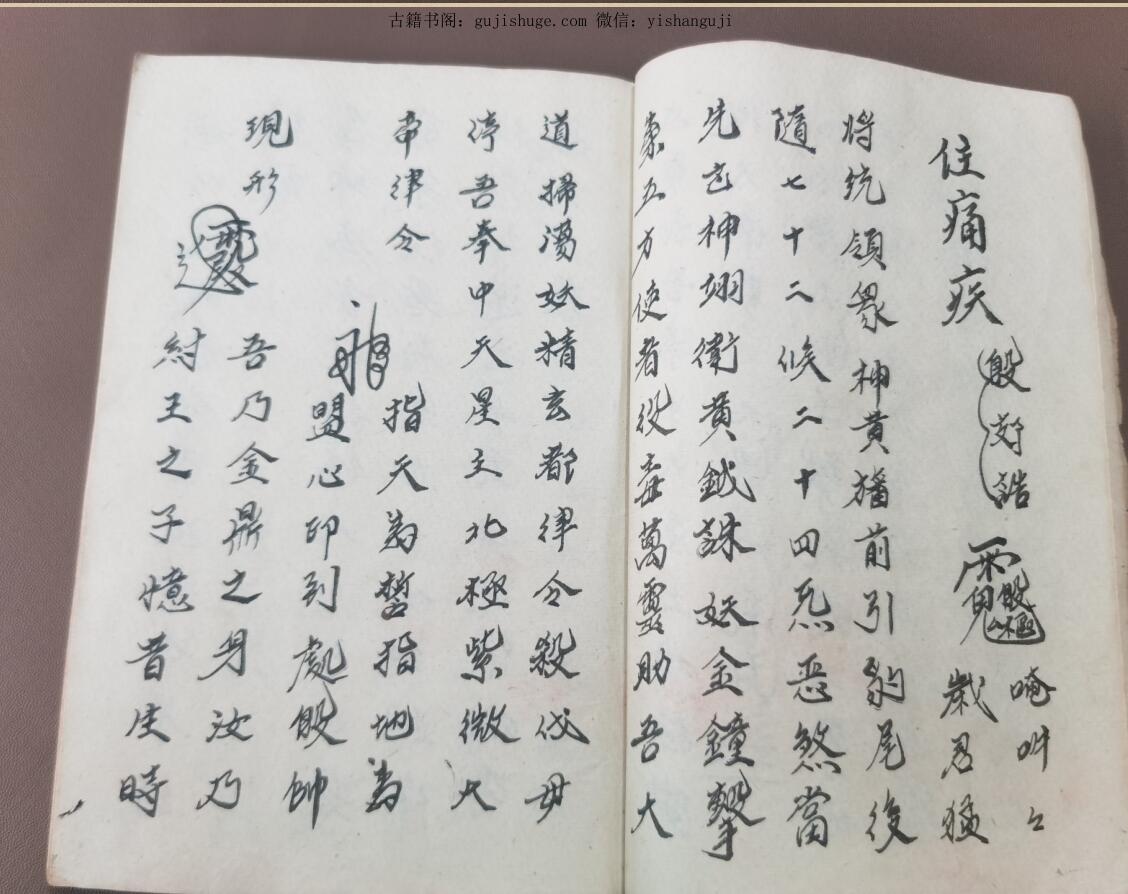 古籍书阁：gujishuge.com 微信：yishanguji
住痛疾
殷郊誥
唵吽々
歲君猛
将统領衆神黄旛前引豹尾後
隨七十二候二十四炁惡煞當
先乞神翊衛黄鉞誅妖金鐘擊
東五方使者役毒萬靈助吾大
道掃湯妖精玄都律令殺伐毋
停吾奉中天星主北極紫微大
帝律令
指天為誓指地為
盟心印到處殷帥
現形
吾乃金鼎之身汝乃
紂王之子憶昔生時